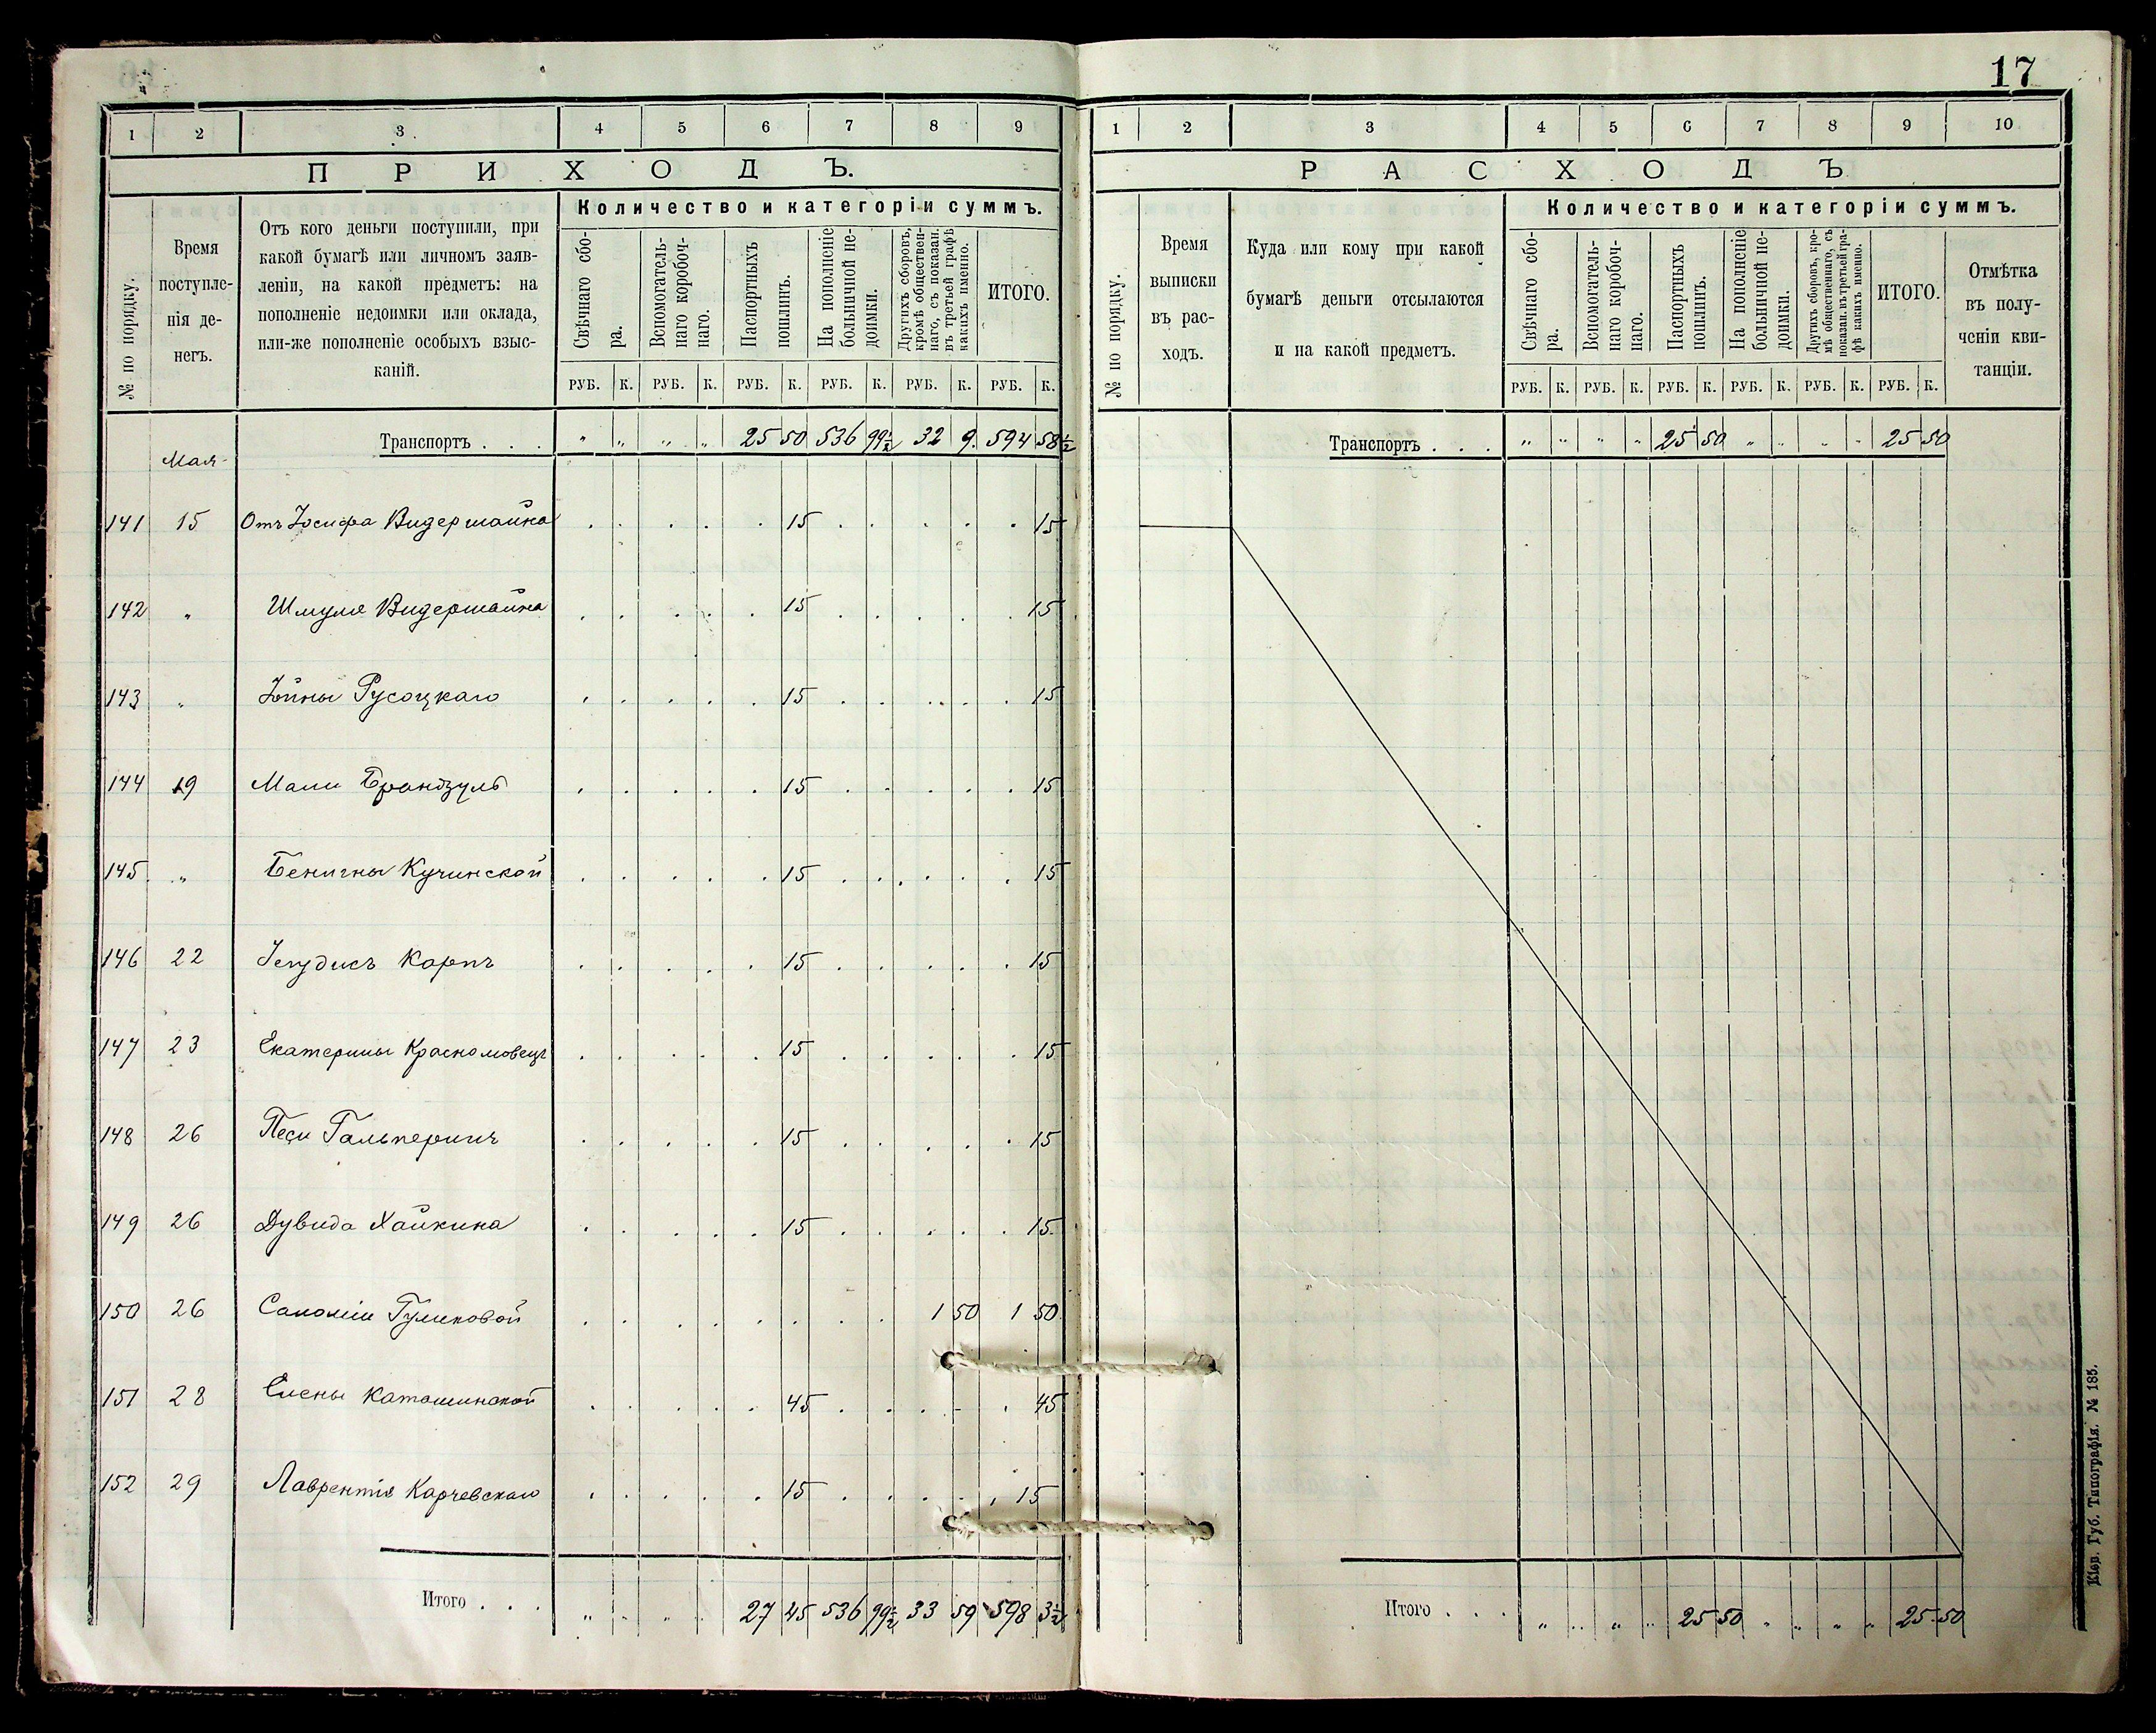 17
1 2 3 4 5 6 7 8 9
ПРИХОДЪ.
№ по порядку.
Время
поступле-
нія де-
негъ.
Отъ кого деньги поступили, при
какой бумагѣ или личномъ заяв-
леніи, на какой предметъ: на
пополненіе недоимки или оклада,
или-же пополненіе особыхъ взыс-
каній.
Количество и категоріи суммъ.
Свѣчнаго сбо-
ра.
Вспомогатель-
наго коробоч-
наго.
Паспортныхъ
пошлинъ.
На пополненіе
больничной не-
доимки.
Другихъ сборовъ,
кромѣ обществен-
наго, съ показан.
въ третьей графѣ
какихъ именно.
ИТОГО.
РУБ. К. РУБ. К. РУБ. К. РУБ. К. РУБ. К. РУБ. К.
Транспортъ . . . „ „ „ „ 25 50 536 99½ 32 9. 594 58½
Мая
141 15 Отъ Іосифа Видершайна 15 15
142 „ Шмуля Видершайна 15 15
143 „ Іойны Русоцкаго 15 15
144 19 Мани 15 15
145 „ Бенигны Кучинской 15 15
146 22 Іегудисъ Карпъ 15 15
147 23 Екатерины 15 15
148 26 Песи Гальперинъ 15 15
149 26 Дувида Хайкина 15 15
150 26 Саломіи Гуликовой 1 50 1 50
151 28 Елены 45 45
152 29 Лаврентія Карчевскаго 15 15
Итого . . . „ „ „ „ 27 45 536 99½ 33 59 598 3½
1 2 3 4 5 6 7 8 9 10
РАСХОДЪ
№ по порядку.
Время
выписки
въ рас-
ходъ.
Куда или кому при какой
бумагѣ деньги отсылаются
и на какой предметъ.
Количество и категоріи суммъ.
Свѣчнаго сбо-
ра.
Вспомогатель-
наго коробоч-
наго.
Паспортныхъ
пошлинъ.
На пополненіе
больничной не-
доимки.
Другихъ сборовъ, кро-
мѣ общественнаго, съ
показан. въ третьей гра-
фѣ какихъ именно.
ИТОГО.
Отмѣтка
въ полу-
ченіи кви-
танціи.
РУБ. К. РУБ. К. РУБ. К. РУБ. К. РУБ. К. РУБ. К.
Транспортъ . . . „ „ „ „ 25 50 „ „ „ „ 25 50
Итого . . . „ „ „ „ 25 50 „ „ „ „ 25 50
Кіев. Губ. Типографія. № 185.